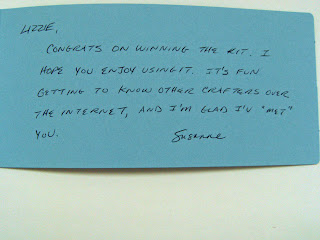 LIZZIE,
CONGRATS ON WINNING THE KIT. I
HOPE YOU ENJOY USING IT. IT'S FUN
GETTING TO KNOW OTHER CRAFTERS OVER
THE INTERNET, AND I'M GLAD I'V "MET"
YOU.
Suzanne